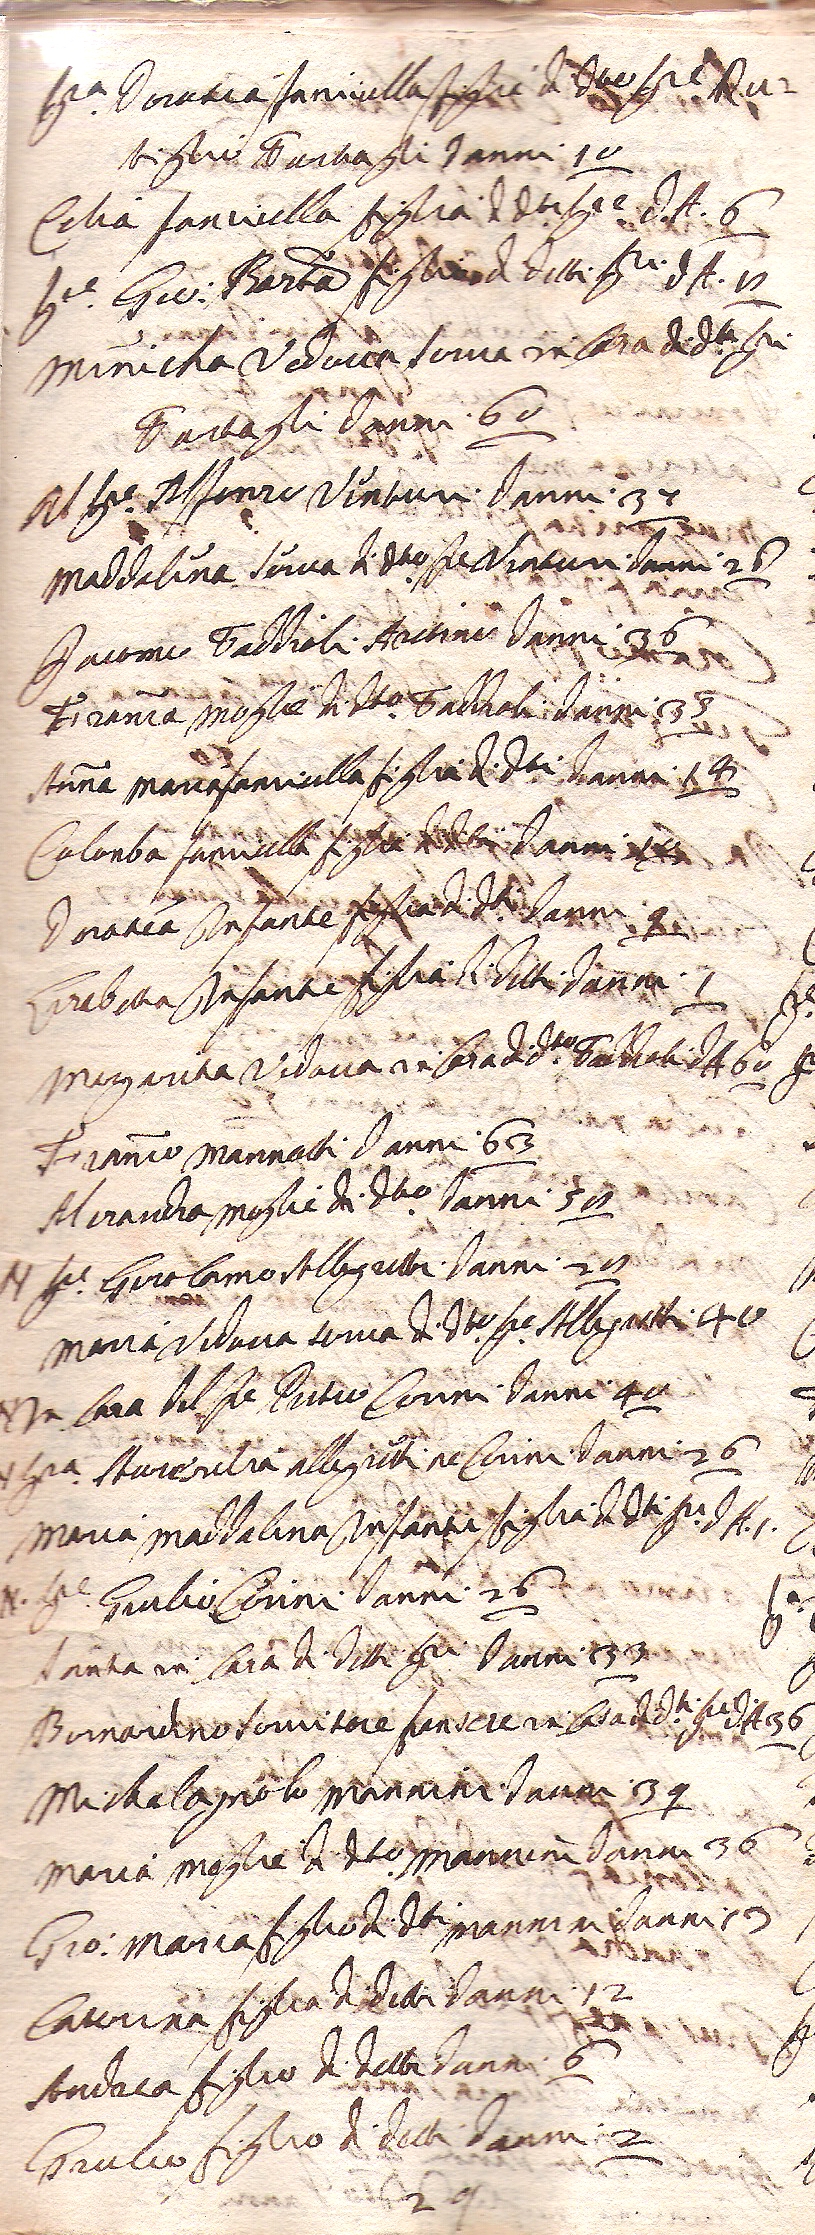 Sra Doratea fanciulla figlia di dto Sre Ru=
tiglio Tartagli d'anni 10
Celia fanciulla figlia di dti Sre d.A. 6
Sre Gio: Barta figlio di detti Sri d A. 11
Minicha Vedova serva in Casa di dti Sri
Tartagli d'anni 60
Il Sre Alfonzo Venturi d'anni 37
Maddalena serva di dto Sre Venturi d'anni 26
Jacomo Taddioli Aretino d'anni 36
Franca moglie di dto Taddioli d'anni 35
Anna Maria fanciulla figlia di dti d'anni 14
Colonba fanciulla figlia di dti d'anni
Doratea Infante figlia di dti d'anni 9
Lisabetta Infante figlia di detti d'anni 1
Margarita Vedova in Casa di dto Taddioli d A 60
Franco Mannotti d'anni 63
Alesandra moglie di dto d'anni 50
N Sre Girolamo Allegretti d'anni 20
Maria Vedova serva di dto Sre Allegretti 40
N In Casa del Sre Curini d'anni 40
N Sra allegretti ne Curini d'anni 26
Maria Maddalena Infante figlia di dti Sri d A. 1.
N. Sre Giulio Curini d'anni 26
Santa in Casa di detti Sri d'anni 33
Bernardino Servitore in Casa di dti Sri d A 36
Michelagnolo Mannini d'anni 39
Maria moglie di dto Mannini d'anni 36
Gio: Maria figlio di dti Mannini d'anni 13
Caterina figlia di detti d'anni 12
Andrea figlio di detti d'anni 6
Giulio figlio di detti d'anni 2
29